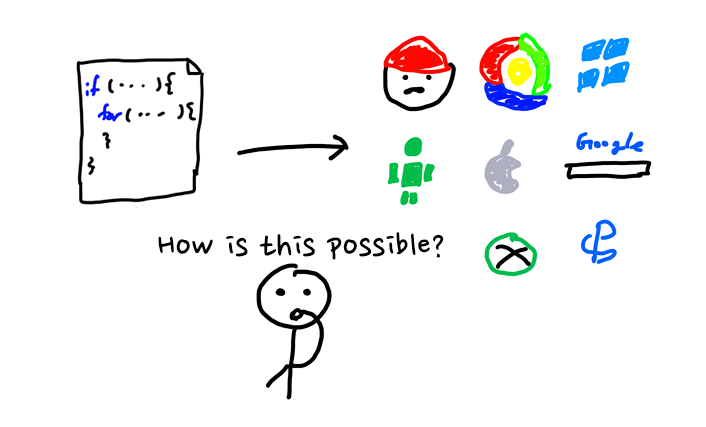 if (...){
for(... ){
}
}
Google
How is this possible?